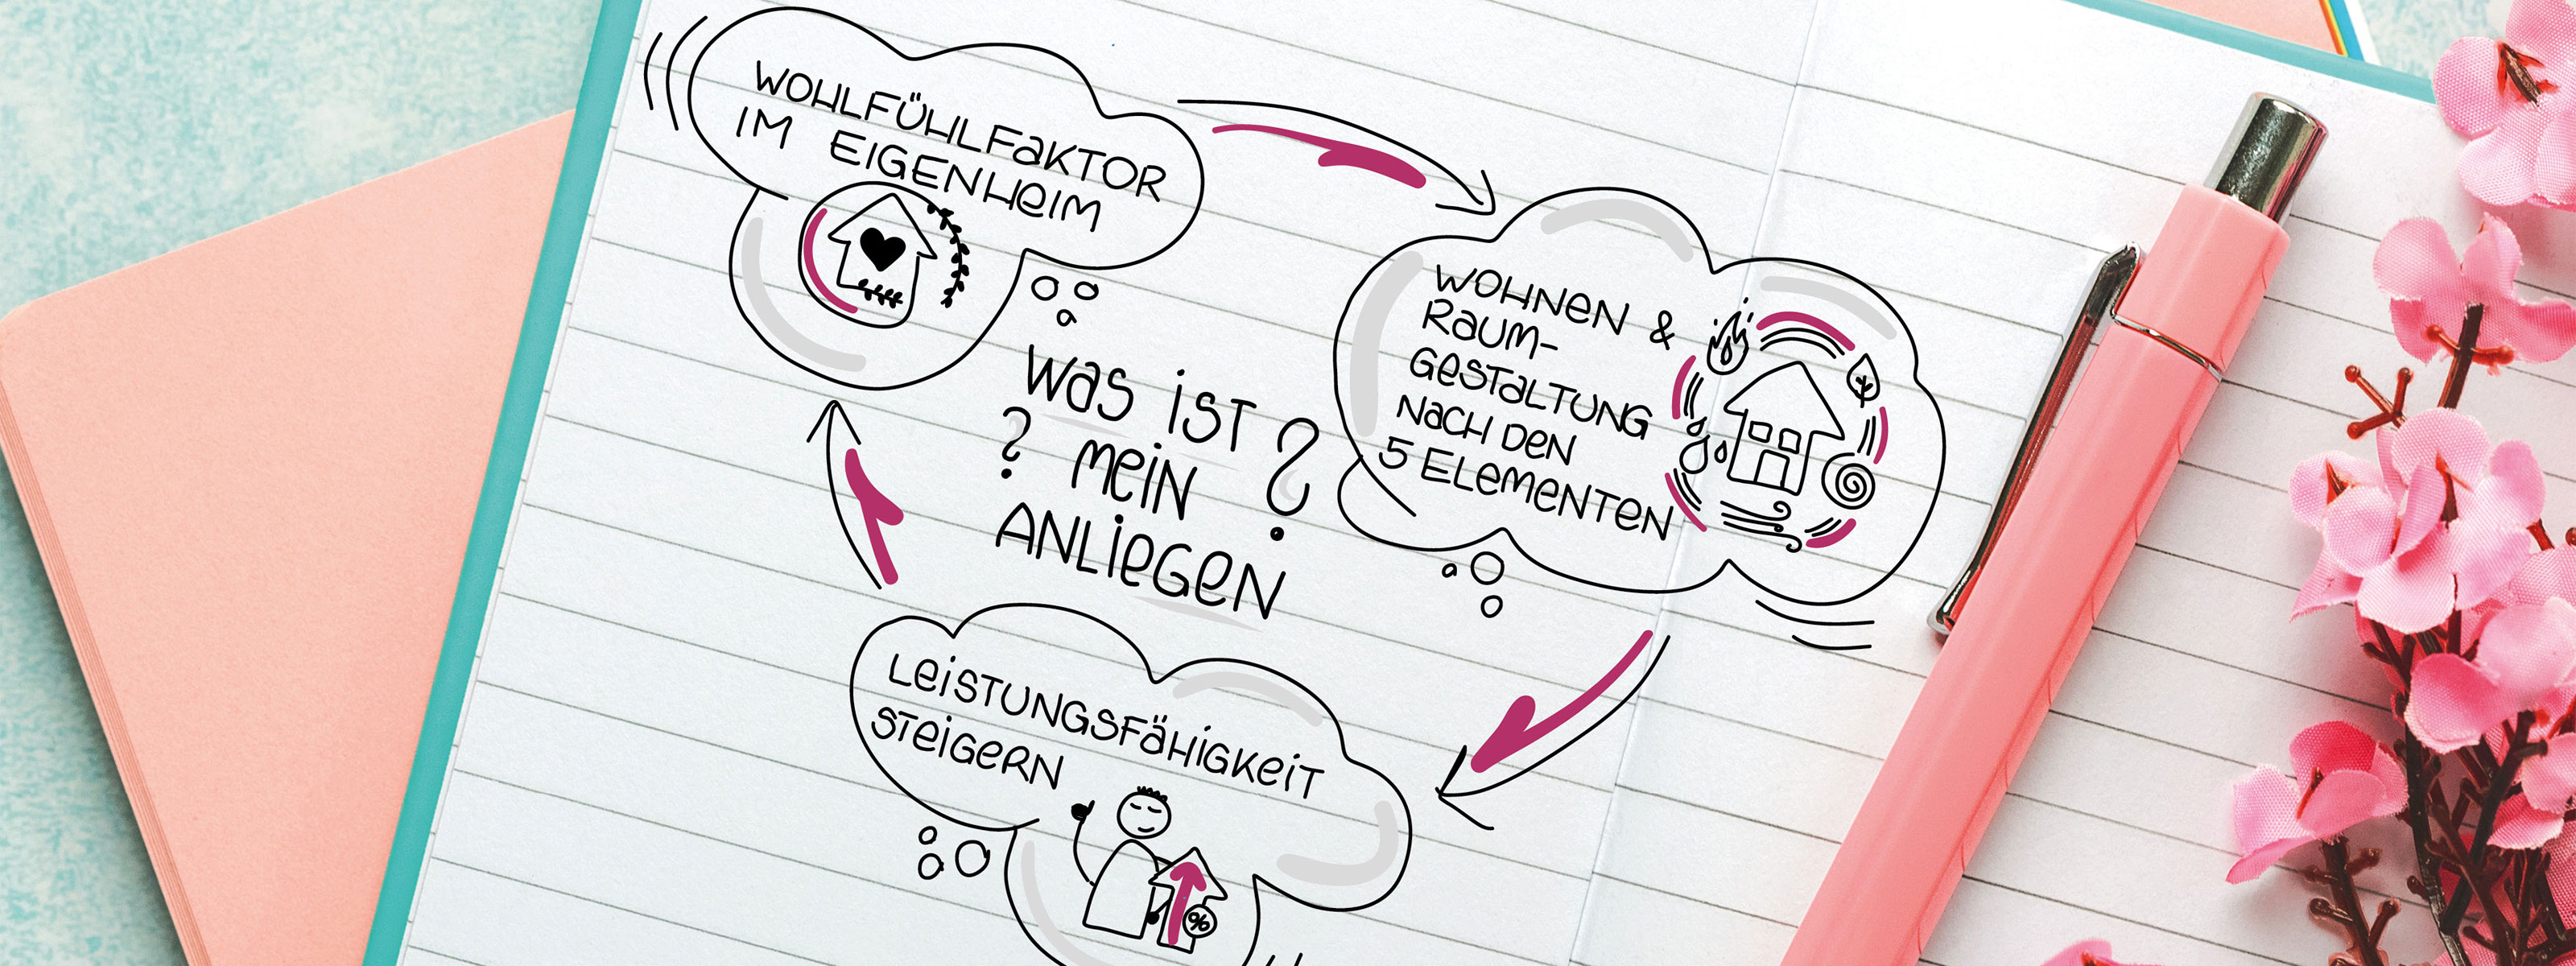 WOHLFÜHLFAKTOR
IM EIGENHEIM
WAS IST ?
? MEIN
ANLIEGEN
WOHNEN &
RAUM-
GESTALTUNG
NACH DEN
5 ELEMENTEN
LEISTUNGSFÄHIGKEIT
STEIGERN
%